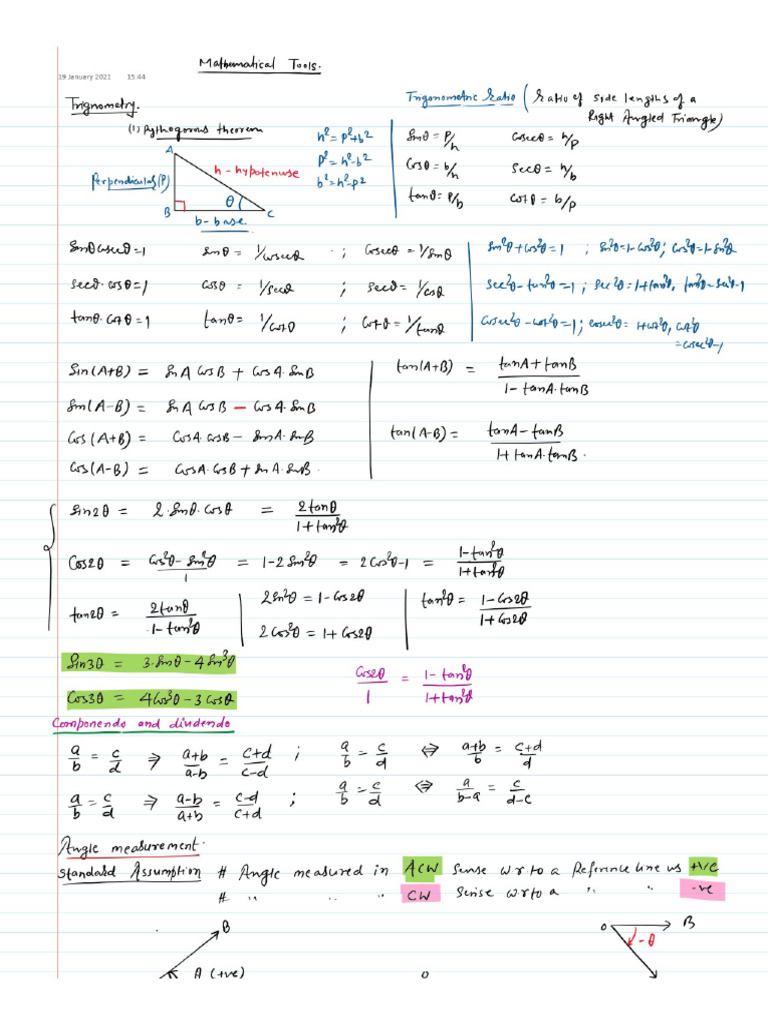 Mathematical Tools.
19 January 2021 15:44
Trignometry.
Trigonometric Ratio (Ratio of side lengths of a Right Angled Triangle)
(1) Pythogorus theorem
A
Perpendicular(P)
h - hypotenuse
θ
B
C
b - base.
h² = p²+b²
p² = h²-b²
b² = h²-p²
Sinθ = P/h Cosecθ = h/p
Cosθ = b/h Secθ = h/b
tanθ = P/b Cotθ = b/p
Sinθ Cosecθ = 1 Sinθ = 1/cosecθ ; Cosecθ = 1/Sinθ
Secθ. Cosθ = 1 Cosθ = 1/secθ ; Secθ = 1/cosθ
tanθ. Cotθ = 1 tanθ = 1/cotθ ; Cotθ = 1/tanθ
Sin²θ + Cos²θ = 1 ; Sin²θ = 1-Cos²θ ; Cos²θ = 1-Sin²θ
Sec²θ - tan²θ = 1 ; Sec²θ = 1+tan²θ, tan²θ = Sec²θ-1
Cosec²θ - Cot²θ = 1 ; Cosec²θ = 1+Cot²θ, Cot²θ = Cosec²θ-1
Sin(A+B) = Sin A Cos B + Cos A. Sin B
Sin(A-B) = Sin A Cos B - Cos A. Sin B
Cos(A+B) = Cos A. Cos B - Sin A. Sin B
Cos(A-B) = Cos A. Cos B + Sin A. Sin B.
tan(A+B) = (tan A + tan B) / (1 - tan A. tan B)
tan(A-B) = (tan A - tan B) / (1 + tan A. tan B).
Sin2θ = 2. Sinθ. Cosθ = 2tanθ / (1+tan²θ)
Cos2θ = (Cos²θ - Sin²θ) / 1 = 1-2Sin²θ = 2Cos²θ-1 = (1-tan²θ) / (1+tan²θ)
tan2θ = 2tanθ / (1-tan²θ)
2Sin²θ = 1-Cos2θ
2Cos²θ = 1+Cos2θ
tan²θ = (1-Cos2θ) / (1+Cos2θ)
Sin3θ = 3. Sinθ - 4Sin³θ
Cos3θ = 4Cos³θ - 3Cosθ
Cos2θ / 1 = (1-tan²θ) / (1+tan²θ)
Componendo and dividendo
a/b = c/d ⇒ (a+b)/(a-b) = (c+d)/(c-d) ; a/b = c/d ⇔ (a+b)/b = (c+d)/d
a/b = c/d ⇒ (a-b)/(a+b) = (c-d)/(c+d) ; a/b = c/d ⇔ a/(b-a) = c/(d-c)
Angle measurement.
Standard Assumption # Angle measured in ACW Sense w.r.to a Reference line is +ve
# " " " CW Sense w.r.to a " " -ve
B
A (+ve)
0
O
B
-θ